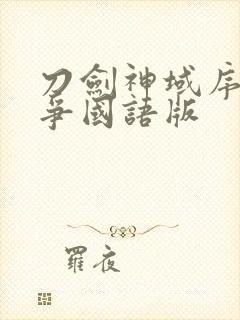 刀劍神域序
爭國語版
羅夜